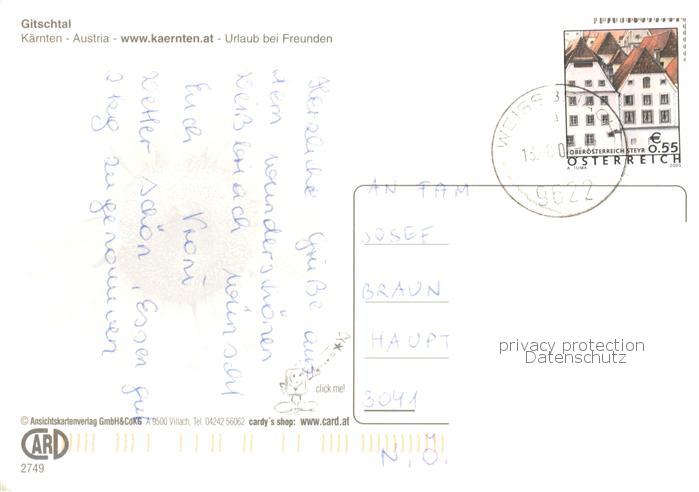 Gitschtal
Kärnten - Austria - www.kaernten.at - Urlaub bei Freunden
Herzliche Grüße aus
dem wunderschönen
Weißbriach wünscht
Euch Vroni
Wetter schön, Essen gut
2 kg zugenommen
€ 0.55
OBERÖSTERREICH STEYR
ÖSTERREICH
A. TUMA
WEISSB
9622
AN FAM
JOSEF
BRAUN
HAUPT
3041
N.Ö.
privacy protection
Datenschutz
click me!
© Ansichtskartenverlag GmbH&CoKG A 9500 Villach, Tel. 04242 56062 cardy's shop: www.card.at
CARD
2749